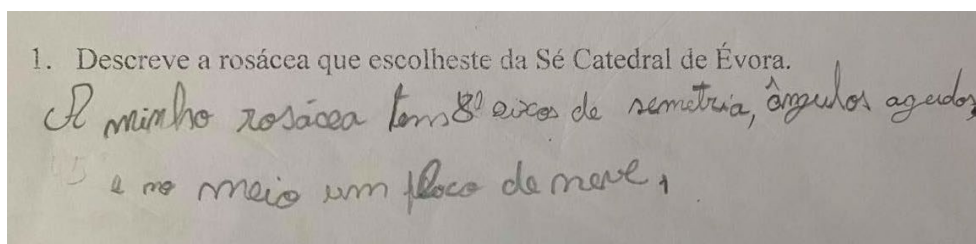 1. Descreve a rosácea que escolheste da Sé Catedral de Évora.
A minha rosácea tem 8 eixos de semetria, ângulos agudos,
e no meio um floco de neve,